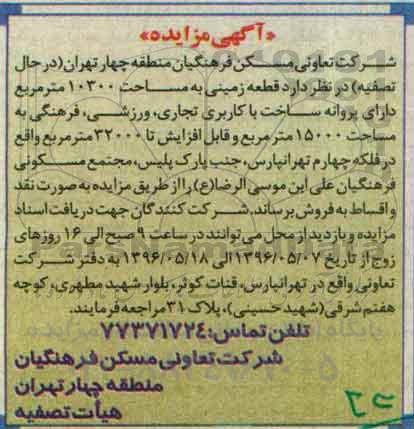 «آگهی مزایده»
شرکت تعاونی مسکن فرهنگیان منطقه چهار تهران (در حال
تصفیه) در نظر دارد قطعه زمینی به مساحت ۱۰۳۰۰ مترمربع
دارای پروانه ساخت با کاربری تجاری، ورزشی، فرهنگی به
مساحت ۱۵۰۰۰ متر مربع و قابل افزایش تا ۳۲۰۰۰ مترمربع واقع
در فلکه چهارم تهرانپارس، جنب پارک پلیس، مجتمع مسکونی
فرهنگیان علی ابن موسی الرضا(ع) را از طریق مزایده به صورت نقد
و اقساط به فروش برساند. شرکت کنندگان جهت دریافت اسناد
مزایده و بازدید از محل می توانند در ساعت ۹ صبح الی ۱۶ روزهای
زوج از تاریخ ۱۳۹۶/۰۵/۰۷ الی ۱۳۹۶/۰۵/۱۸ به دفتر شرکت
تعاونی واقع در تهرانپارس، قنات کوثر، بلوار شهید مطهری، کوچه
هفتم شرقی (شهید حسینی)، پلاک ۳۱ مراجعه فرمایند.
تلفن تماس: ۷۷۳۷۱۷۲۴
شرکت تعاونی مسکن فرهنگیان
منطقه چهار تهران
هیأت تصفیه